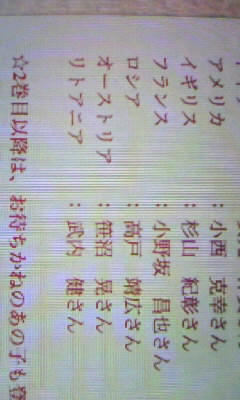 アメリカ : 小西 克幸さん
イギリス : 杉山 紀彰さん
フランス : 小野坂 昌也さん
ロシア : 高戸 靖広さん
オーストリア : 笹沼 晃さん
リトアニア : 武内 健さん
☆2巻目以降は、お待ちかねのあの子も登